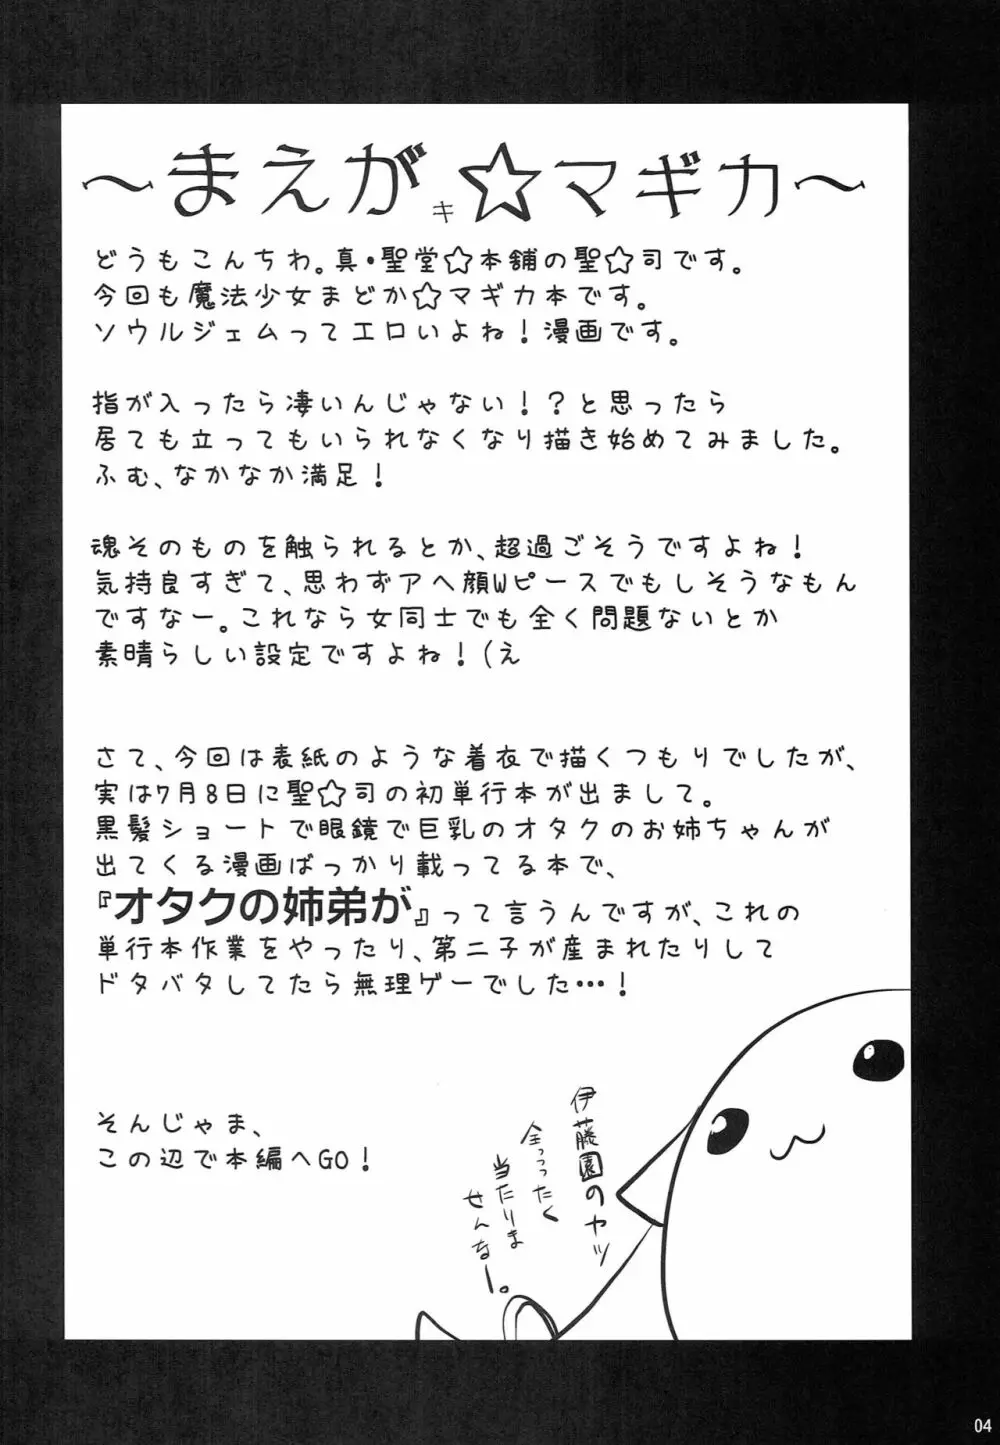 ～まえがキ☆マギカ～
どうもこんちわ。真・聖堂☆本舗の聖☆司です。
今回も魔法少女まどか☆マギカ本です。
ソウルジェムってエロいよね！漫画です。
指が入ったら凄いんじゃない！？と思ったら
居ても立ってもいられなくなり描き始めてみました。
ふむ、なかなか満足！
魂そのものを触られるとか、超過ごそうですよね！
気持良すぎて、思わずアヘ顔Wピースでもしそうなもん
ですなー。これなら女同士でも全く問題ないとか
素晴らしい設定ですよね！(え
さて、今回は表紙のような着衣で描くつもりでしたが、
実は7月8日に聖☆司の初単行本が出まして。
黒髪ショートで眼鏡で巨乳のオタクのお姉ちゃんが
出てくる漫画ばっかり載ってる本で、
『オタクの姉弟が』って言うんですが、これの
単行本作業をやったり、第二子が産まれたりして
ドタバタしてたら無理ゲーでした…！
そんじゃま、
この辺で本編へGO！
伊藤園のヤツ
全っったく
当たりま
せんなー。
04